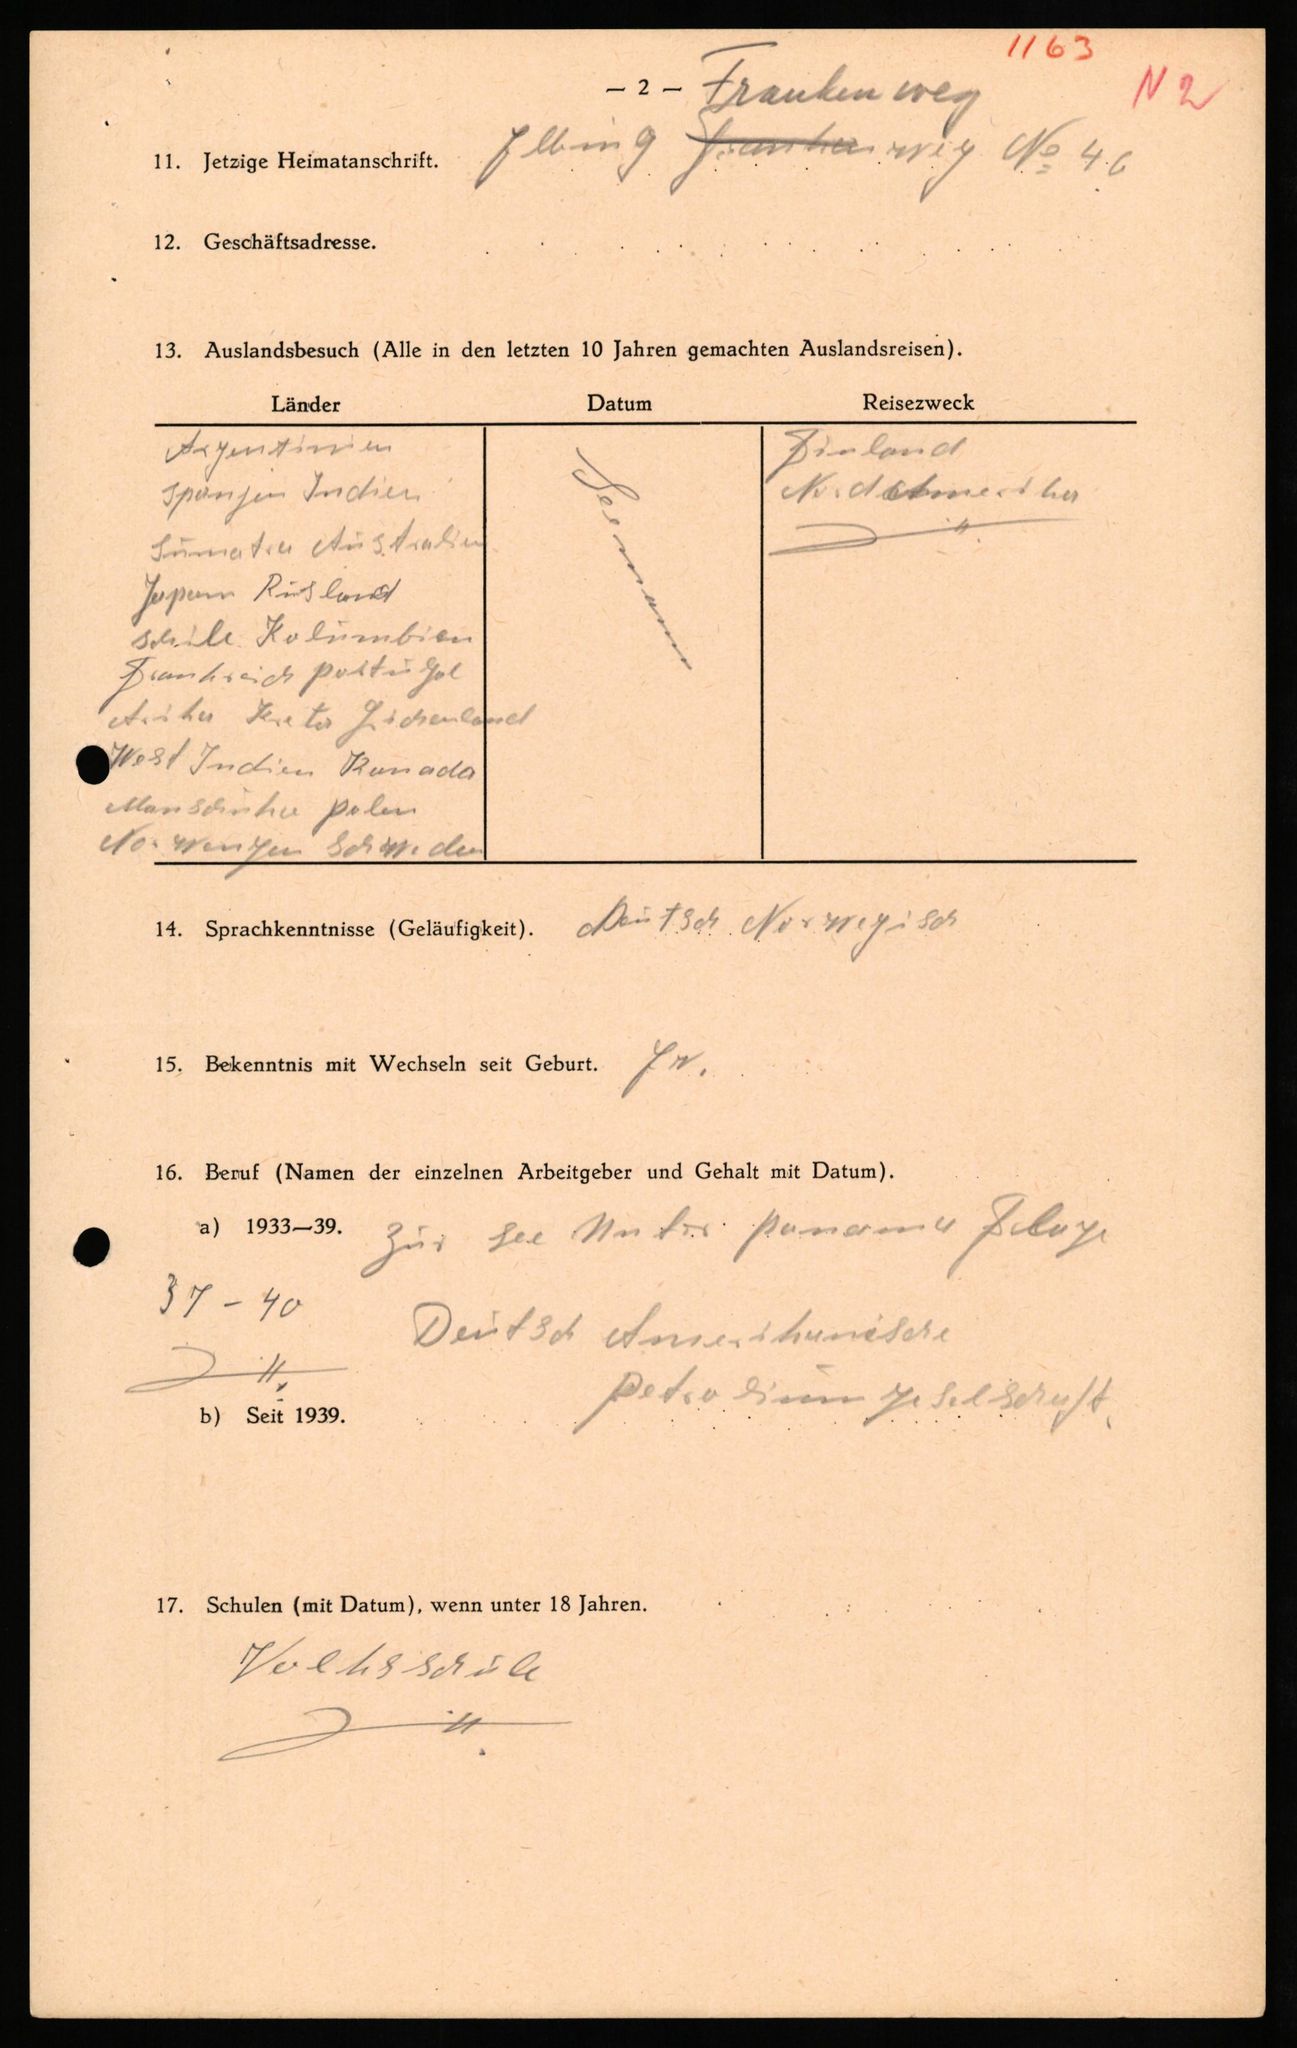 1163
N 2
— 2 — Frankenweg
11. Jetzige Heimatanschrift. Elbing Frankenweg No 46
12. Geschäftsadresse.
13. Auslandsbesuch (Alle in den letzten 10 Jahren gemachten Auslandsreisen).
Länder Datum Reisezweck
Argentinien Seemann Finland
Spanjen Indien Nord Amerika
Sumatra Australien
Japan Rusland
Schile Kolumbien
Frankreich Portugal
Afrika Kreta Grichenland
West Indien Kanada
Manschuka Polen
Norwengen Schweden
14. Sprachkenntnisse (Geläufigkeit). Deutsch Norwegisch
15. Bekenntnis mit Wechseln seit Geburt. Ev.
16. Beruf (Namen der einzelnen Arbeitgeber und Gehalt mit Datum).
a) 1933—39. Zur See Unter Panama Flage
37 – 40 Deutsch Amerikanische
Petroliumgeselschaft
b) Seit 1939.
17. Schulen (mit Datum), wenn unter 18 Jahren.
Volksschule